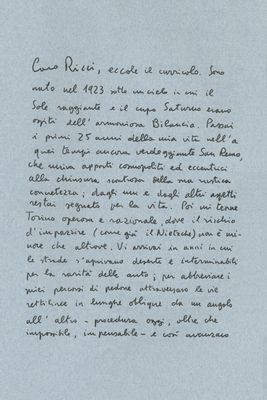 Caro Ricci, eccole il curricolo. Sono
nato nel 1923 sotto un cielo in cui il
Sole raggiante e il cupo Saturno erano
ospiti dell'armoniosa Bilancia. Passai
i primi 25 anni della mia vita nell'a
quei tempi ancora verdeggiante San Remo,
che univa apporti cosmopoliti ed eccentrici
alla chiusura scontrosa della sua rustica
concretezza; dagli uni e dagli altri aspetti
restai segnato per la vita. Poi mi tenne
Torino operosa e razionale, dove il rischio
d'impazzire (come già il Nietzsche) non è mi-
nore che altrove. Vi arrivai in anni in cui
le strade s'aprivano deserte e interminabili
per la rarità delle auto; per abbreviare i
miei percorsi di pedone attraversavo le vie
rettilinee in lunghe oblique da un angolo
all'altro - procedura oggi, oltre che
impossibile, impensabile - e così avanzavo